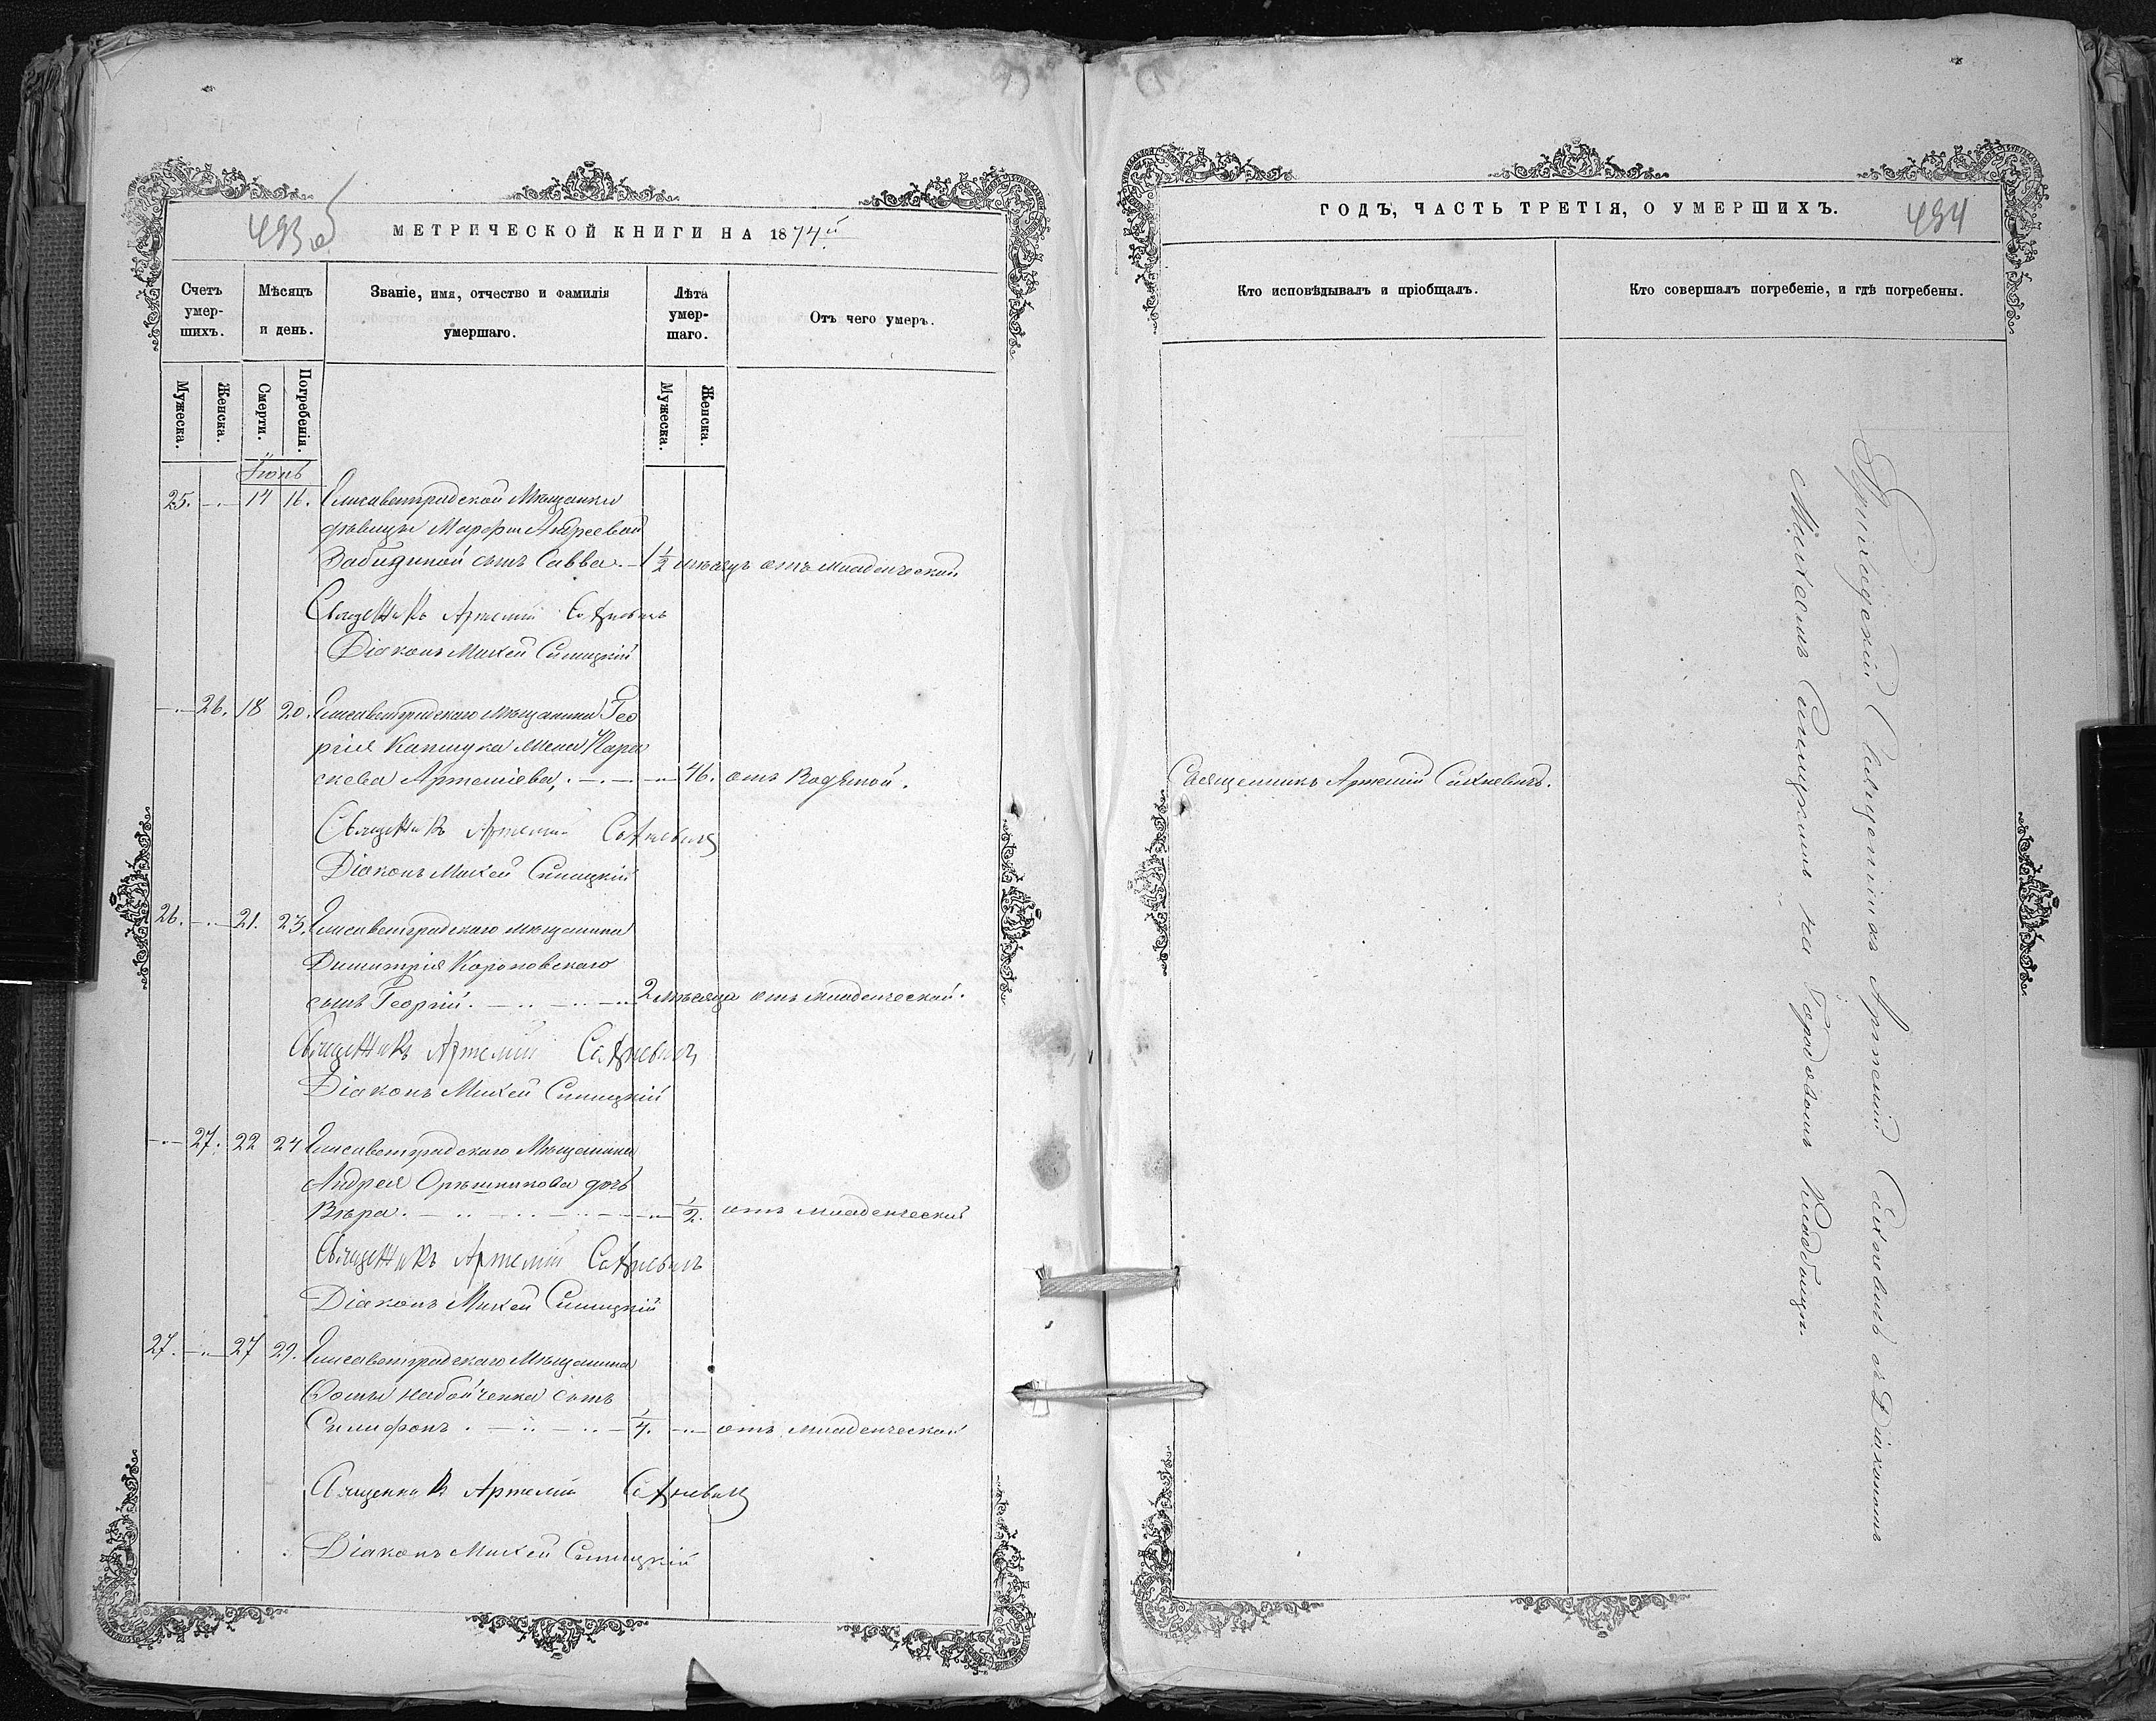 493об
МЕТРИЧЕСКОЙ КНИГИ НА 1874й
Счетъ умершихъ.
Мѣсяцъ и день.
Званіе, имя, отчество и фамилія умершаго.
Лѣта умершаго.
Отъ чего умеръ.
Мужеска.
Женска.
Смерти.
Погребенія.
Мужеска
Женска.
Іюнь
25. 14 16. Елисаветградской Мѣщанки
дѣвицы Марфы Андреевой
сынъ Савва. 1 1/2 мѣсяцъ отъ младенческой
Священикъ Артемій Сахневичъ
Діаконъ Михей Синицкій
26. 18 20. Елисаветградскаго мѣщанина Гео
ргія Капшука жена Пара
скева Артеміева, 46. отъ Водяной.
Священикъ Артемій Сахневичъ
Діаконъ Михей Синицкій
26. 21. 23. Елисаветградскаго мѣщанина
Димитрія Короновскаго
сынъ Георгій. 2 мѣсяца отъ младенческой.
Священикъ Артемій Сахневичъ
Діаконъ Михей Синицкій
27. 22 24 Елисаветградскаго Мѣщанина
Андрея Орѣшникова дочь
Вѣра. 1/2. отъ младенческой
Священикъ Артемій Сахневичъ
Діаконъ Михей Синицкій
27. 27 29. Елисаветградскаго Мѣщанина
Фомы Набойченка сынъ
1/4. отъ младенческой
Священникъ Артемій Сахневичъ
Діаконъ Михей Синицкій
ГОДЪ, ЧАСТЬ ТРЕТІЯ, О УМЕРШИХЪ.
494
Кто исповѣдывалъ и пріобщалъ.
Кто совершалъ погребеніе, и гдѣ погребены.
Священникъ Артемій Сахневичъ.
Приходскій Священникъ Артемій Сахневичъ съ Діакономъ
Михеемъ Синицкимъ на Городскомъ Кладбищѣ.